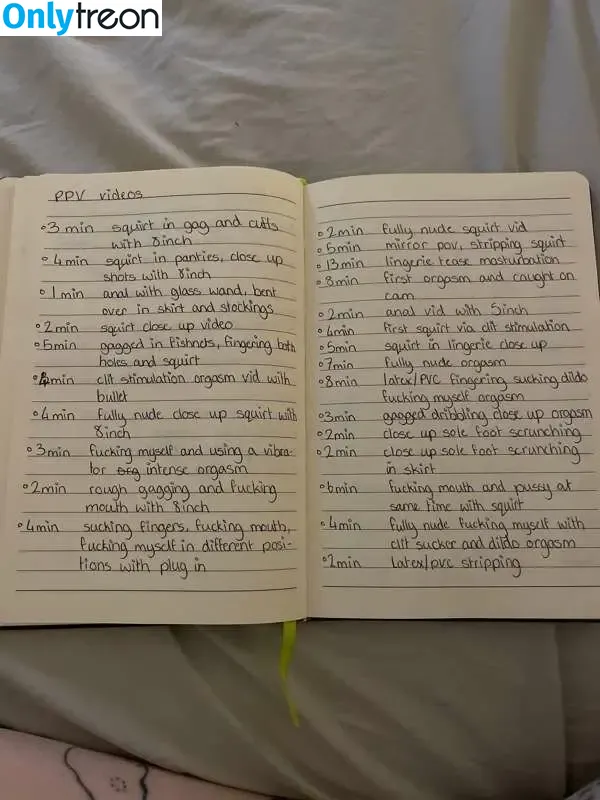 Onlytreon
PPV videos
• 3 min squirt in gag and cuffs
with 8inch
• 4 min squirt in panties, close up
shots with 8inch
• 1 min anal with glass wand, bent
over in skirt and stockings
• 2 min squirt close up video
• 5 min gagged in fishnets, fingering both
holes and squirt
• 4 min clit stimulation orgasm vid with
bullet
• 4 min fully nude close up squirt with
8inch
• 3 min fucking myself and using a vibra-
tor org intense orgasm
• 2 min rough gagging and fucking
mouth with 8inch
• 4 min sucking fingers, fucking mouth,
fucking myself in different posi-
tions with plug in
• 2 min fully nude squirt vid
• 5 min mirror pov, stripping squirt
• 13 min lingerie tease masturbation
• 8 min first orgasm and caught on
cam
• 2 min anal vid with 5inch
• 4 min first squirt via clit stimulation
• 5 min squirt in lingerie close up
• 7 min fully nude orgasm
• 8 min latex/PVC fingering sucking dildo
fucking myself orgasm
• 3 min gagged dribbling close up orgasm
• 2 min close up sole foot scrunching
• 2 min close up sole foot scrunching
in skirt
• 6 min fucking mouth and pussy at
same time with squirt
• 4 min fully nude fucking myself with
clit sucker and dildo orgasm
• 2 min Latex/pvc stripping